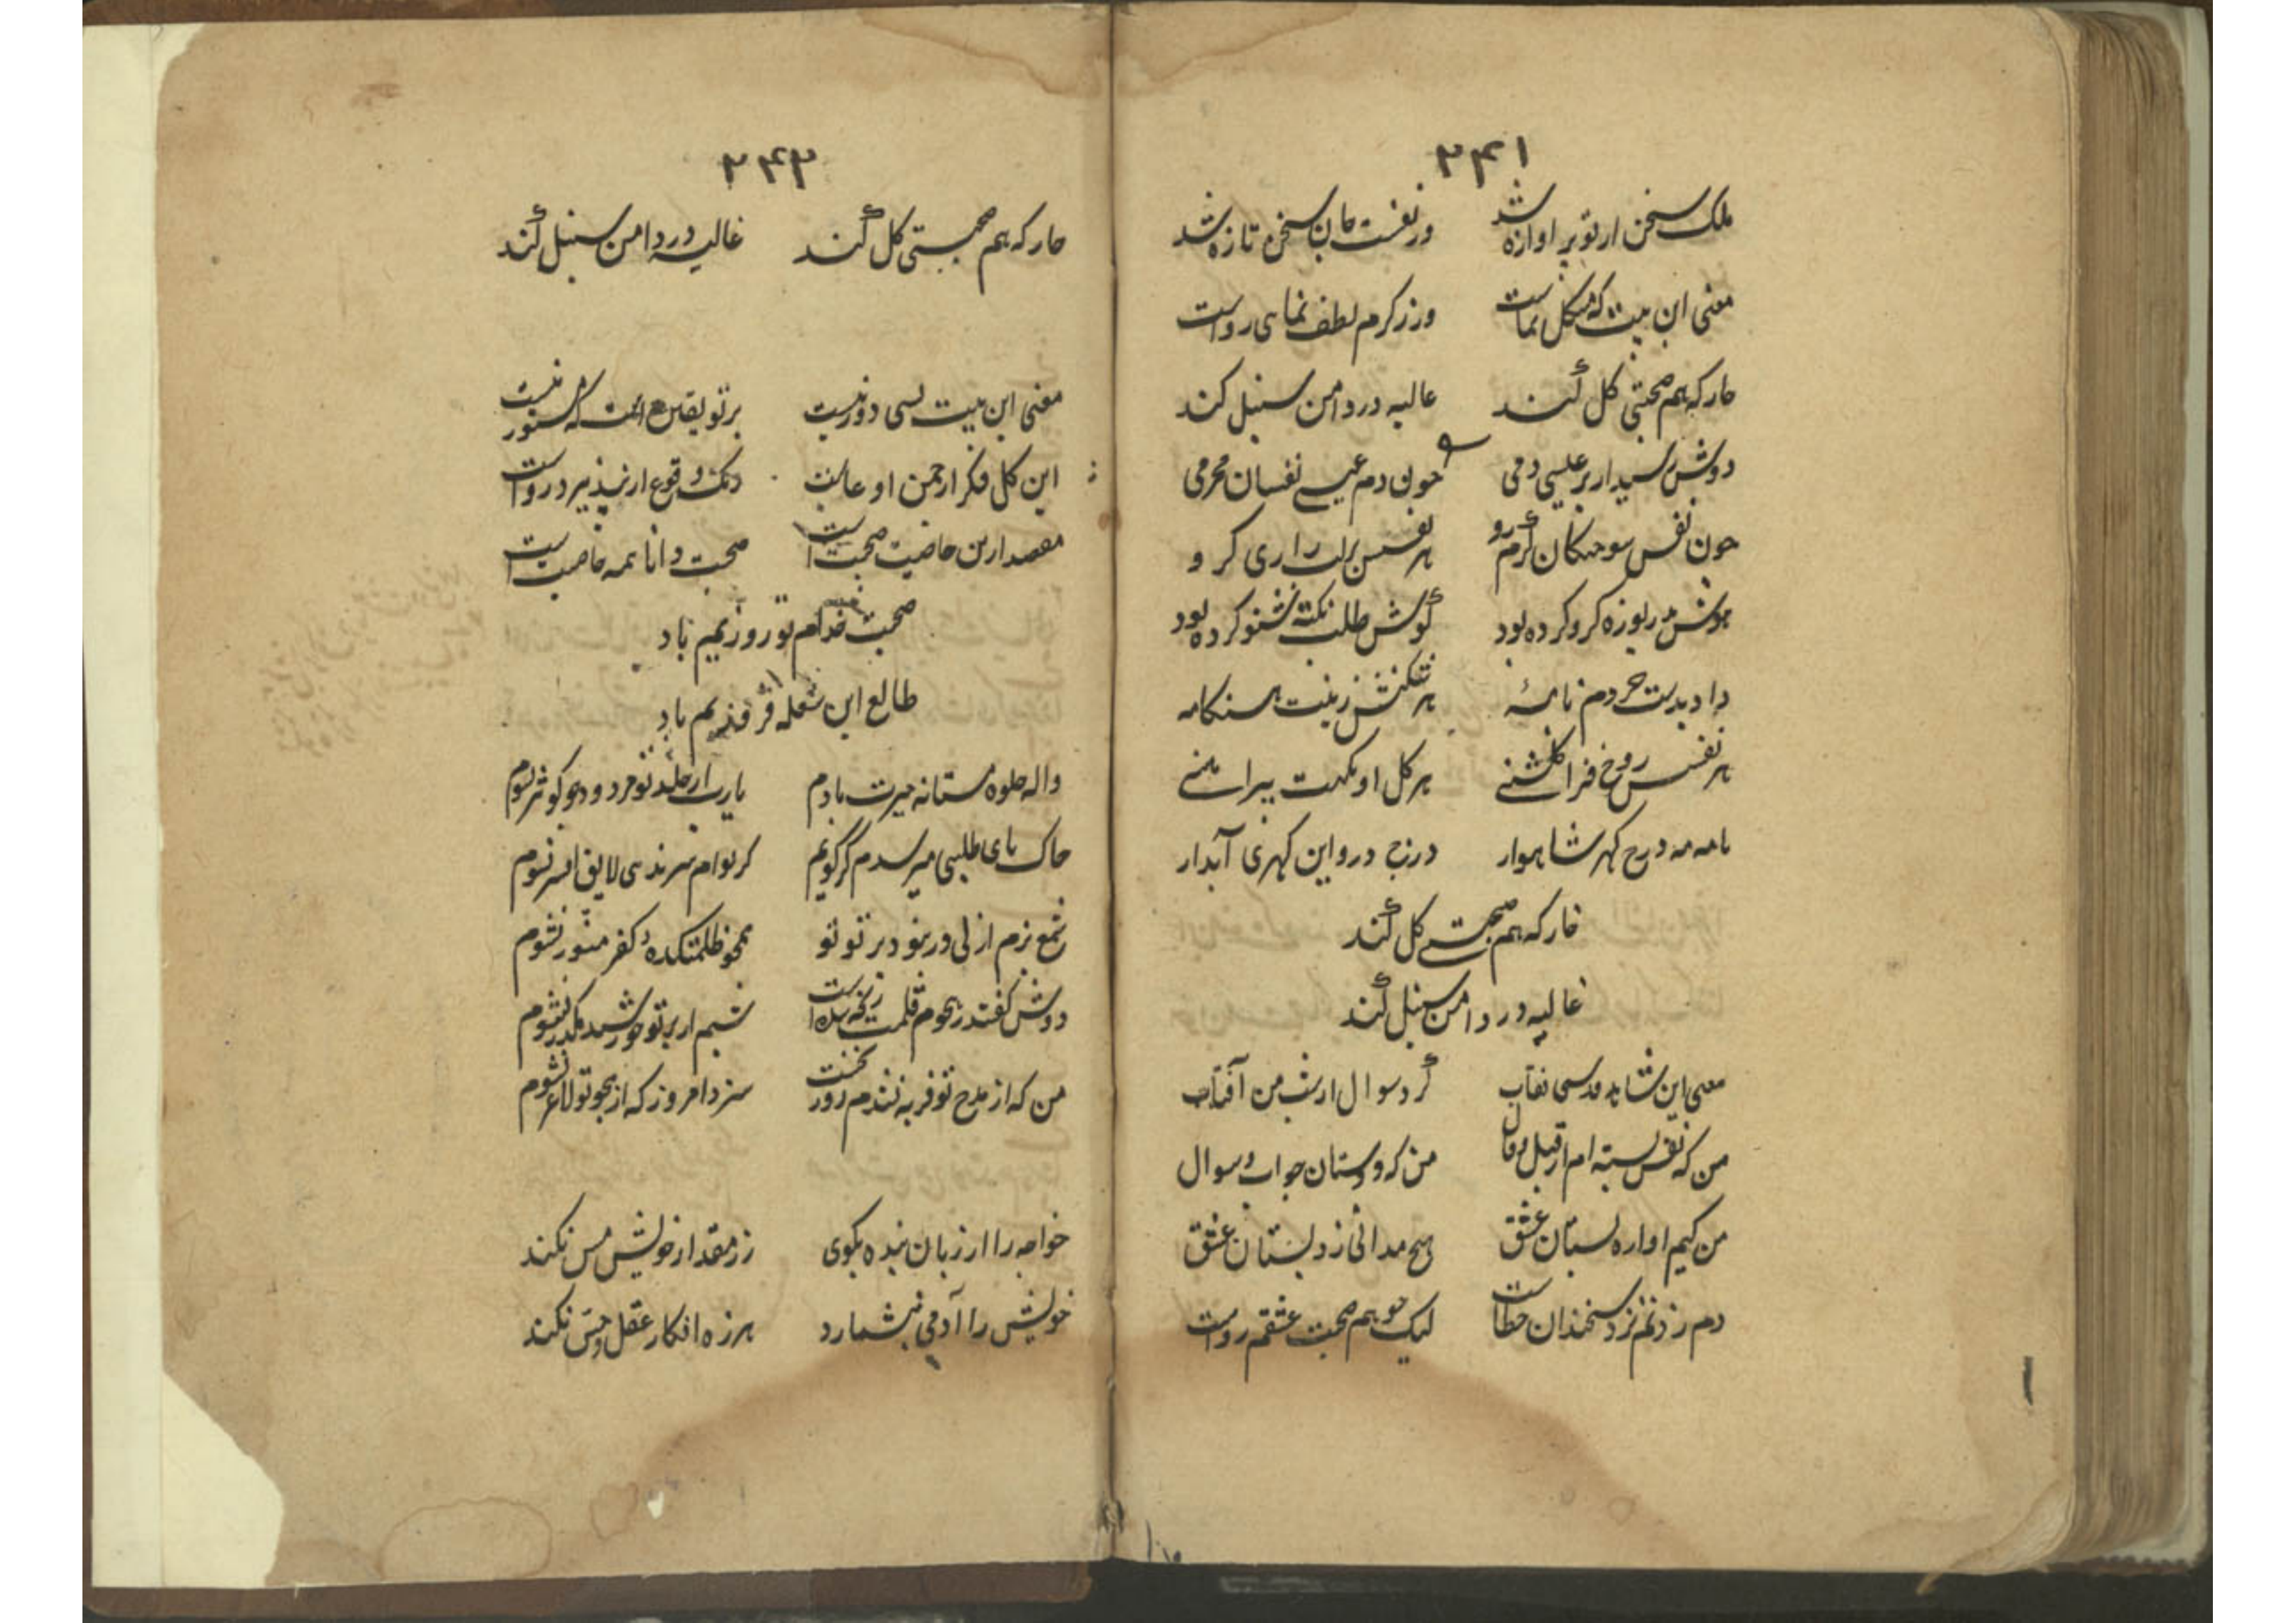 ۲۴۱
ملک سخن از تو پر اوازه شد ورنفست جان سخن تازه شد
معنی این بیت که مشکل نماست ورز کرم لطف نمای رواست
خار که هم صحبتی گل کند غالیه در دامن سنبل کند
دوش رسید از بر عیسی دمی چون دم عیسی نفسان محرمی
چون نفس سوختگان گرم رو هر نفسش
هوش کرو کرده بود گوش طلب نکته شنو کرده بود
داد بدست خردم نامهٔ هر زینت هنگامه
هر نفس روح فزا گلشنی هر گل او نکهت پیراهنی
نامه نه درج گهر شاهوار درج درو این گهری آبدار
خار که هم صحبتی گل کند
غالیه در دامن سنبل کند
معنی این شاهد قدسی نقاب کرد سوال از شب من آفتاب
من که نفس بسته ام از قیل وقال من که و دستان جواب و سوال
من کیم اواره بستان عشق هیچ مدانی ز دبستان عشق
دم زدنم نزد سخندان خطاست لیک چو هم صحبت عشقم رواست
۲۴۲
خار که هم صحبتی گل کند غالیه در دامن سنبل کند
معنی این بیت بسی دور نیست بر تو یقین است که مستور نیست
این گل فکر از چمن او رواست
مقصد ازین خاصیت صحبت است صحبت دانا همه خاصیت است
صحبت خدام تو روزیم باد
طالع این شعله فروزیم باد
واله جلوه مستانه حیرت بادم یارب ار جلد تو کوثر نشوم
خاک پای طلبی میرسدم گر گویم گر بوام سرندهی لایق افسر نشوم
شمع بزم ازلی در بر تو تو همچو ظلمتکده کفر منور نشوم
دوش گفتند ز هجوم قلمت است شبم از پرتو خورشید مکدر نشوم
من که از مدح تو فربه نشدم روز نخست سزد امروز که از هجو تو لاغر نشوم
خواجه را از زبان بنده بگوی زر مقدار خویش مس نکند
خویش را آدمی نشمارد هرزه افکار عقل و حس نکند